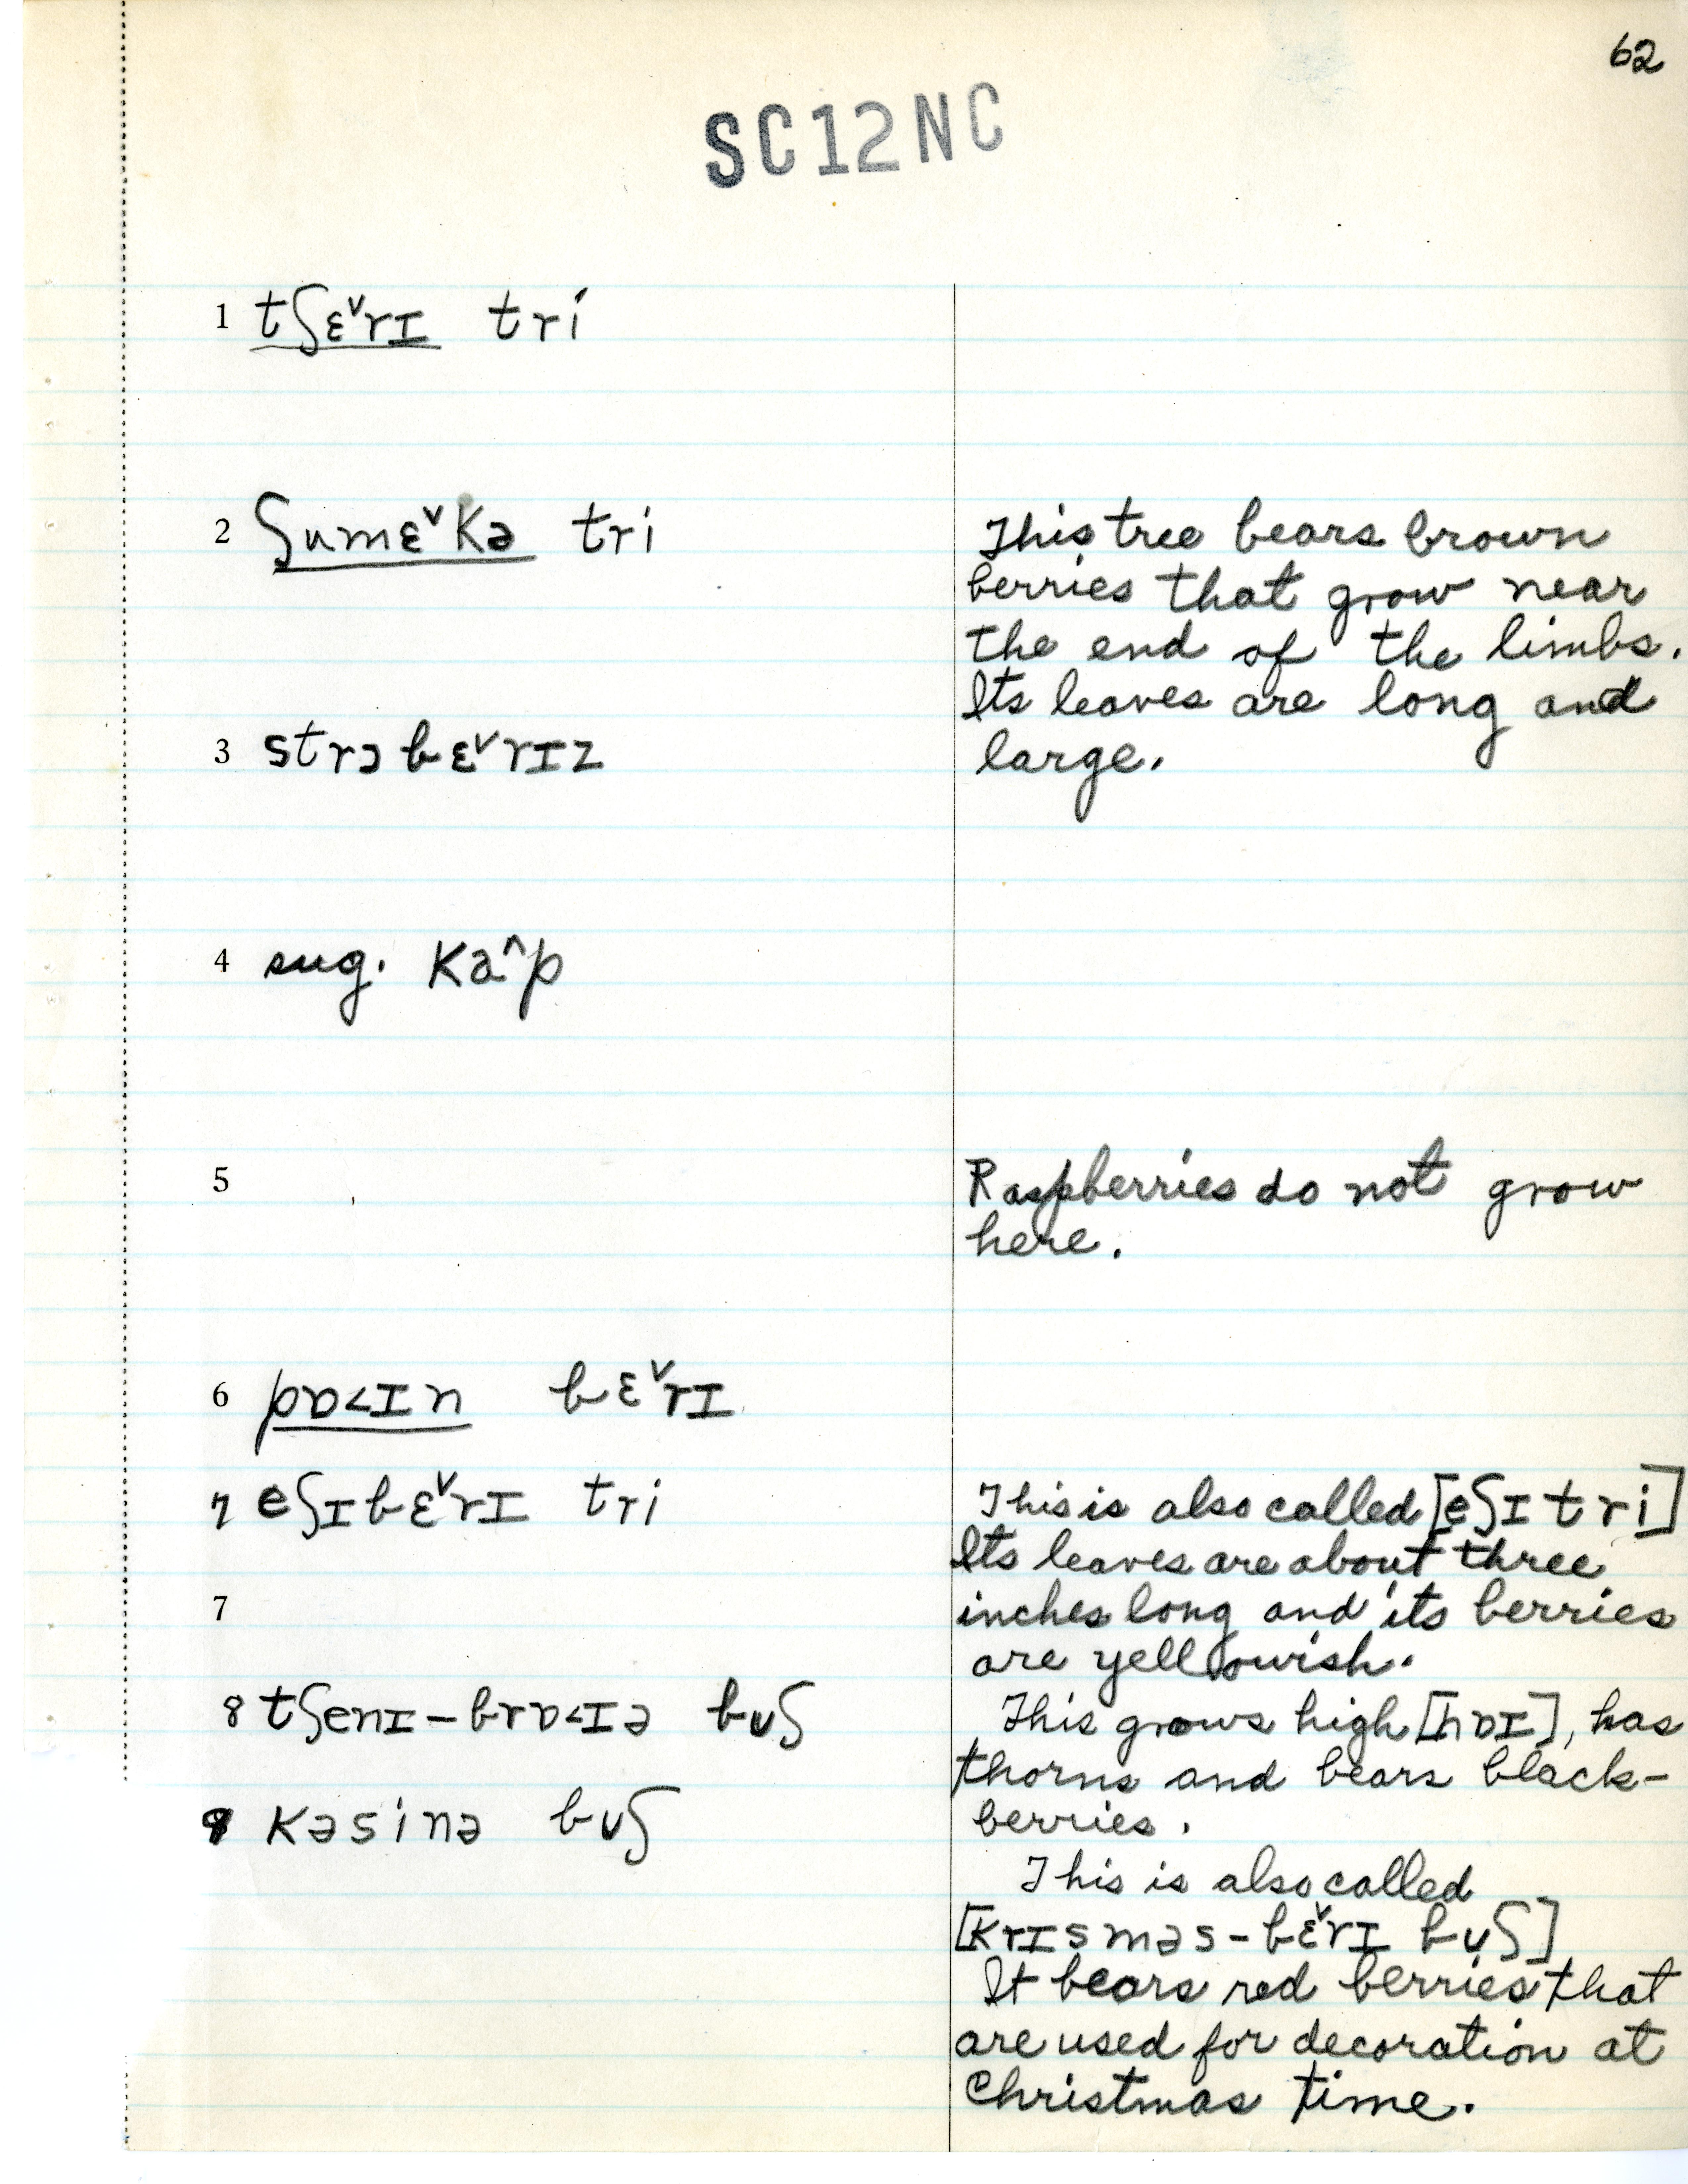 62
SC12NC
1 tʃɛ˅rɪ tri
2 ʃumɛ˅kə tri
This tree bears brown
berries that grow near
the end of the limbs.
Its leaves are long and
large.
3 strɔbɛ˅rɪz
4 sug. kə^p
5
Raspberries do not grow
here.
6 pɒ<ɪn bɛ˅rɪ
7 eʃɪbɛ˅rɪ tri
This is also called [eʃɪ tri]
Its leaves are about three
7
inches long and its berries
are yellowish.
8 tʃenɪ-brɒ<ɪə bʊʃ
This grows high [hɒɪ], has
thorns and bears black-
berries.
9 kəsinə bʊʃ
This is also called
[krɪsməs-bɛ˅rɪ bʊʃ]
It bears red berries that
are used for decoration at
Christmas time.